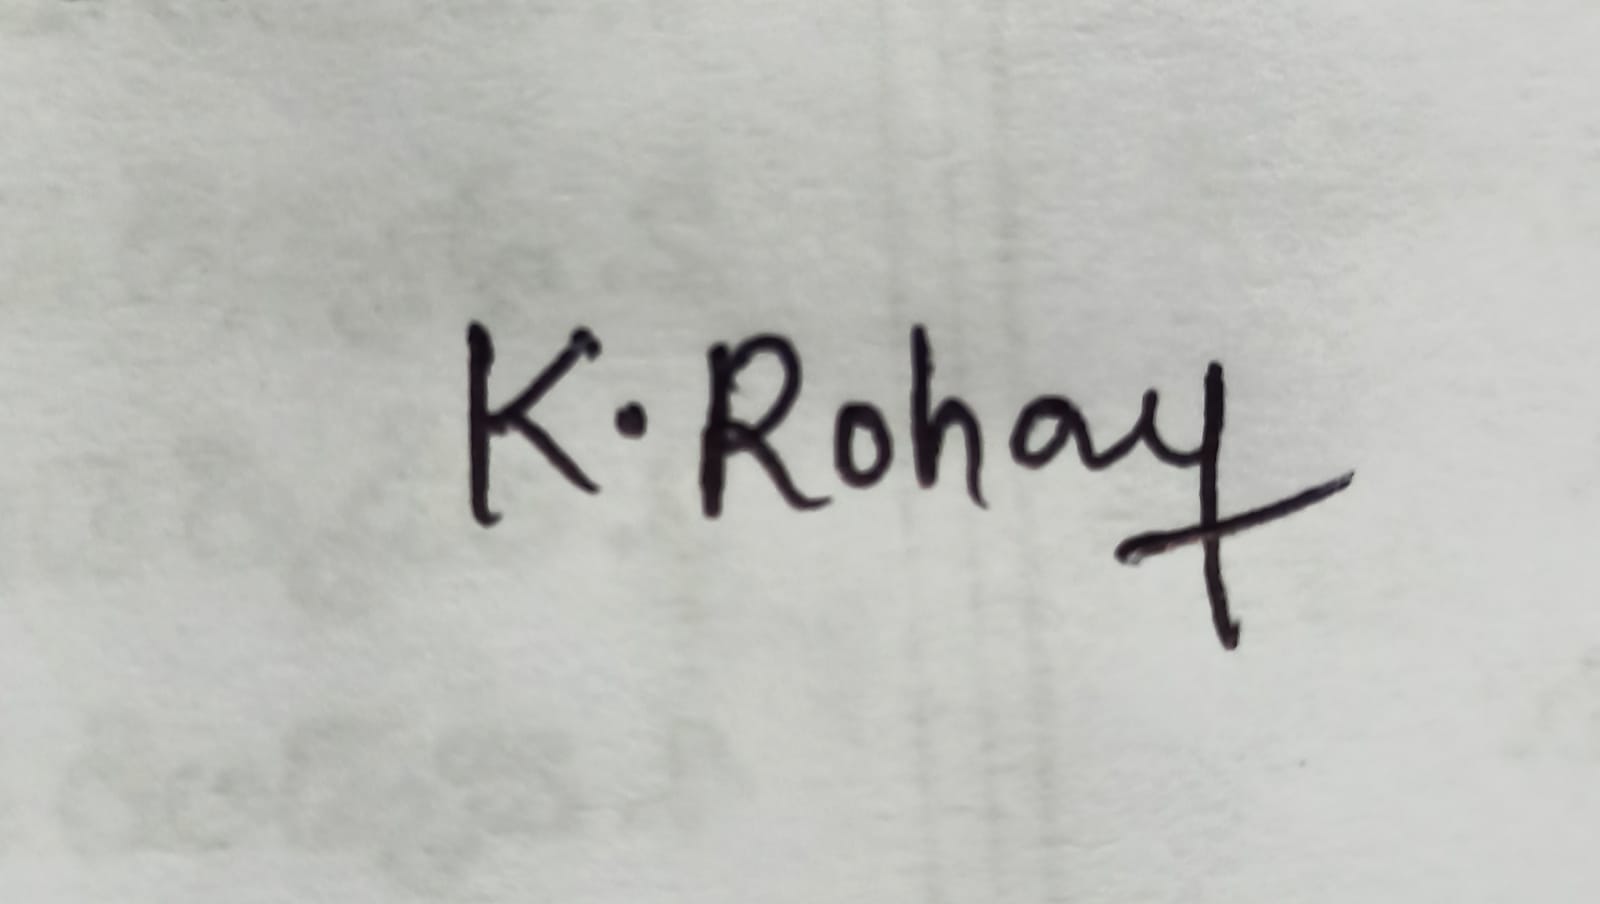 K. Rohay